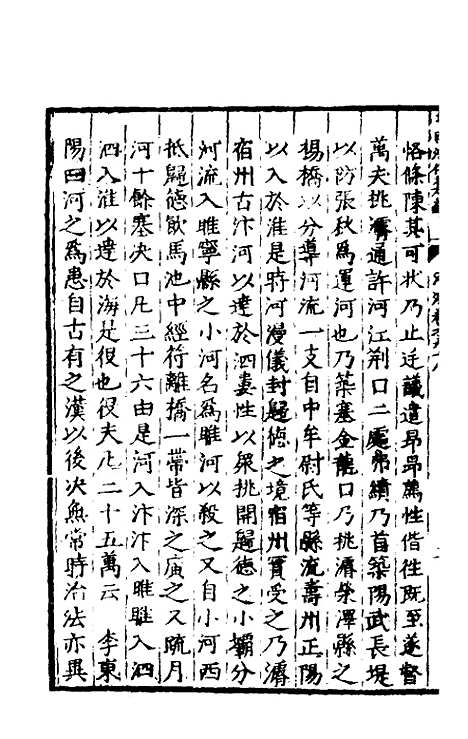 恪條陳其可狀乃止迁議遣昂昂薦性偕徃既至遂督
萬夫挑濬通許河江荆口二處弗績乃首築陽武長堤
以防張秋爲運河也乃築塞金龍口乃挑濬滎澤縣之
楊橋以分導河流一支自中牟尉氏等縣流壽州正陽
以入於淮是時河漫儀封歸德之境宿州實受之乃濬
宿州古汴河以達於泗婁性以衆挑開歸德之小壩分
河流入睢寧縣之小河名爲睢河以殺之又自小河西
抵歸德飲馬池中經符離橋一帶皆深之廣之又疏月
河十餘塞决口凡三十六由是河入汴汴入睢睢入泗
泗入淮以達於海是役也役夫凡二十五萬云 李東
陽曰河之爲患自古有之漢以後决無常時治法亦異